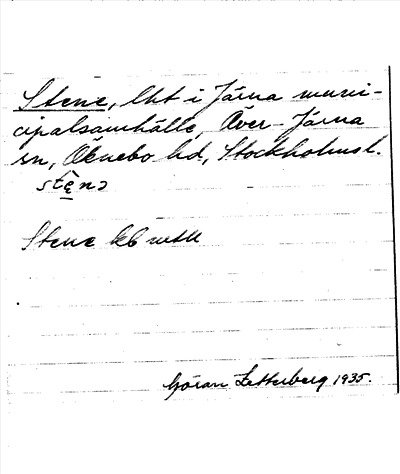 Stene, lht i Järna muni-
cipalsamhälle, Över-Järna
sn, Öknebo hd, Stockholmsl.
Stene kb
Göran Zetterberg 1935.